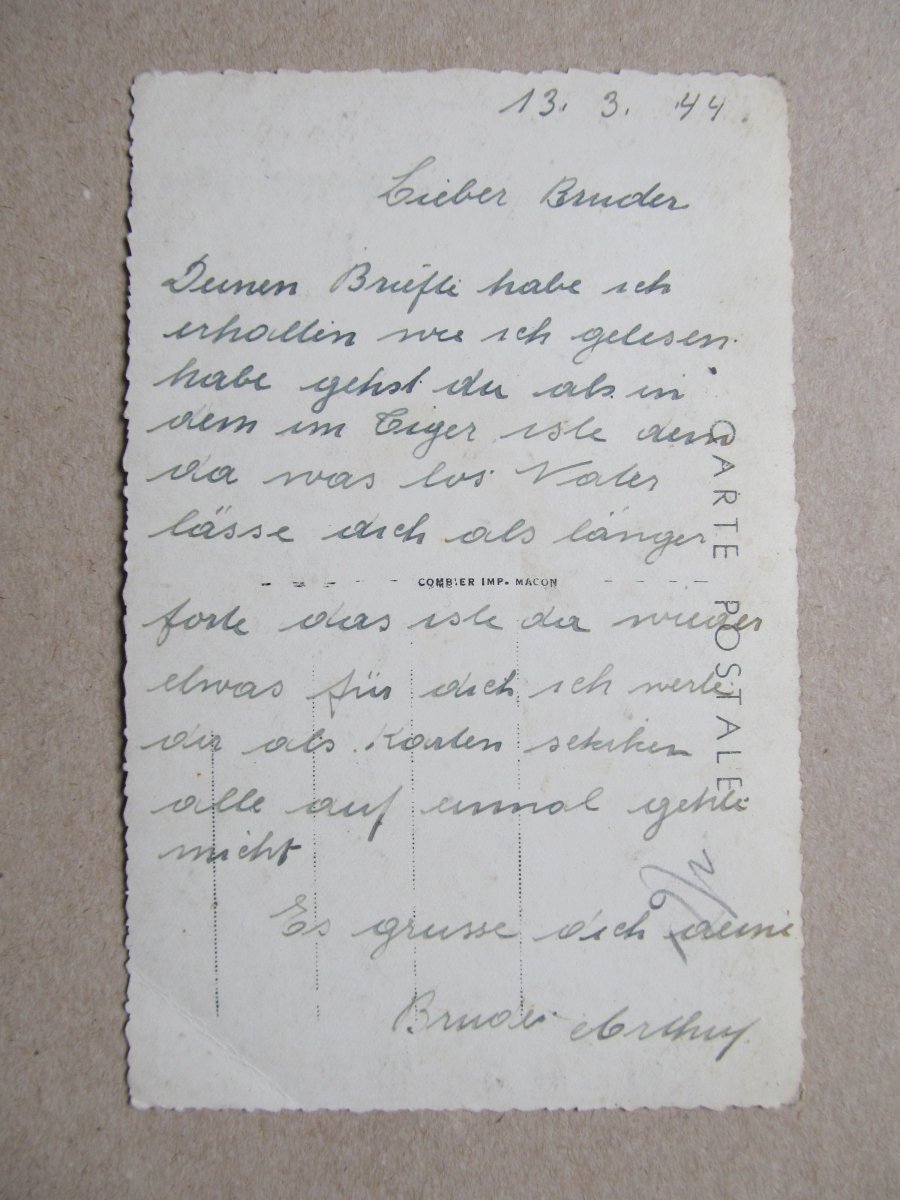 13. 3. 44
Lieber Bruder
Deinen Briefte habe ich
erhalten wie ich gelesen
habe gehst du als in
dem im Tiger iste dem
da was los Vater
lässe dich als länger
COMBIER IMP. MACON
forte das iste da wieder
etwas für dich ich werte
dir als Karten
alle auf einmal gehte
nicht
Es grusse dich deine
Bruder Arthur
CARTE POSTALE